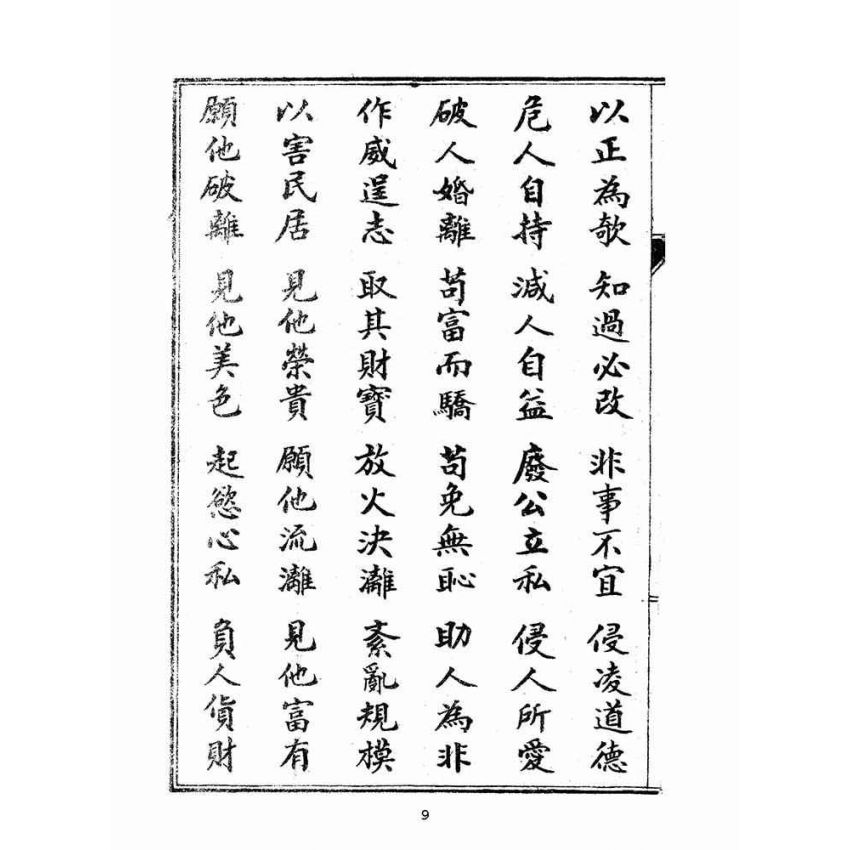 以正為欹 知過必改 非事不宜 侵凌道德
危人自持 減人自益 廢公立私 侵人所愛
破人婚離 苟富而驕 苟免無恥 助人為非
作威逞志 取其財寶 放火決灕 紊亂規模
以害民居 見他榮貴 願他流灕 見他富有
願他破離 見他美色 起慾心私 負人貨財
9